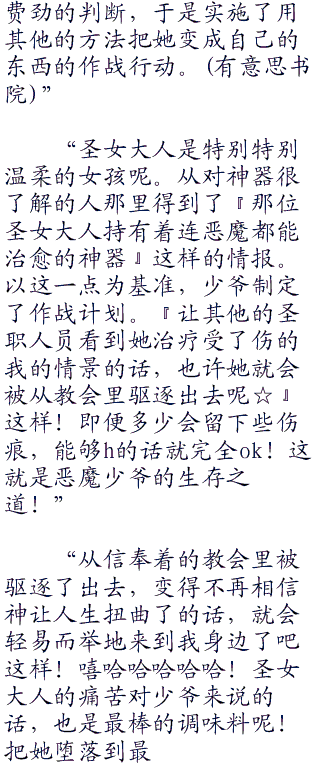 费劲的判断，于是实施了用
其他的方法把她变成自己的
东西的作战行动。(有意思书
院)”
“圣女大人是特别特别
温柔的女孩呢。从对神器很
了解的人那里得到了『那位
圣女大人持有着连恶魔都能
治愈的神器』这样的情报。
以这一点为基准，少爷制定
了作战计划。『让其他的圣
职人员看到她治疗受了伤的
我的情景的话，也许她就会
被从教会里驱逐出去呢☆』
这样！即便多少会留下些伤
痕，能够h的话就完全ok！这
就是恶魔少爷的生存之
道！”
“从信奉着的教会里被
驱逐了出去，变得不再相信
神让人生扭曲了的话，就会
轻易而举地来到我身边了吧
这样！嘻哈哈哈哈哈！圣女
大人的痛苦对少爷来说的
话，也是最棒的调味料呢！
把她堕落到最